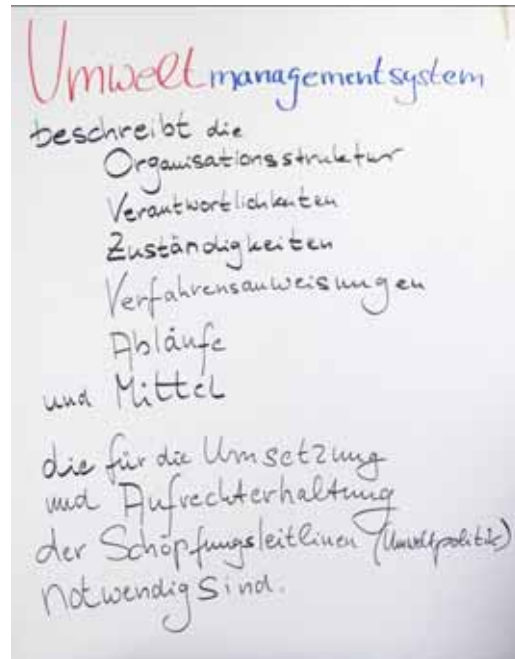 Umweltmanagementsystem
beschreibt die
Organisationsstruktur
Verantwortlichkeiten
Zuständigkeiten
Verfahrensanweisungen
Abläufe
und Mittel
die für die Umsetzung
und Aufrechterhaltung
der Schöpfungsleitlinen (Umweltpolitik)
notwendig sind.